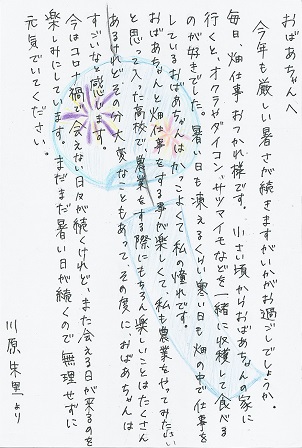 おばあちゃんへ
今年も厳しい暑さが続きますがいかがお過ごしでしょうか。
毎日、畑仕事おつかれ様です。小さい頃からおばあちゃんの家に
行くと、オクラやダイコン、サツマイモなどを一緒に収穫して食べる
のが好きでした。暑い日も凍えるくらい寒い日も畑の中で仕事
しているおばあちゃんはかっこよくて私の憧れです。
おばあちゃんと畑仕事をする事が楽しくて、私も農業をやってみたい
と思って入った高校で、農業をする際にもちろん楽しいことはたくさん
あるけれどその分大変なこともあって、その度に、おばあちゃんは
すごいなと感じます。
今はコロナ禍で会えない日々が続くけれど、また会える日が来るのを
楽しみにしています。まだまだ暑い日が続くので無理せずに
元気でいてください。
川原朱里より